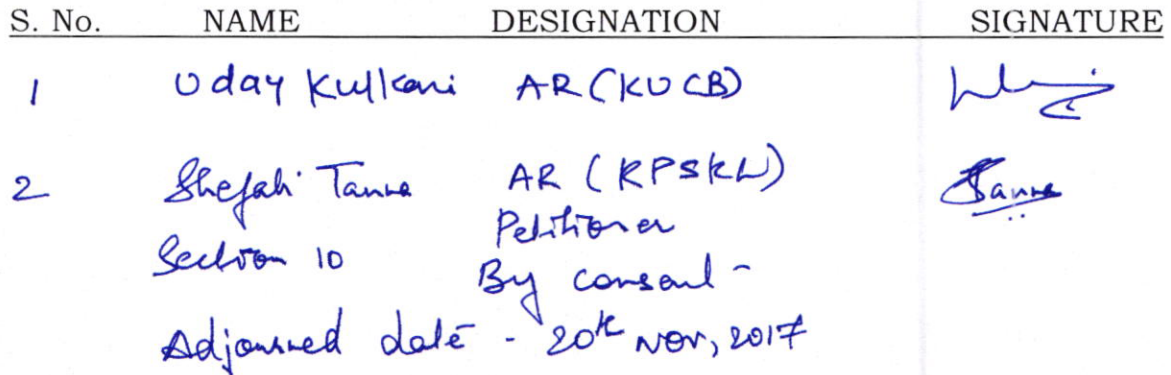 S. No. NAME DESIGNATION SIGNATURE
1 Uday Kulkarni AR (KUCB)
2 Shefali Tanna AR (KPSKL)
Petitioner
Section 10 By consent -
Adjourned date - 20th Nov, 2017